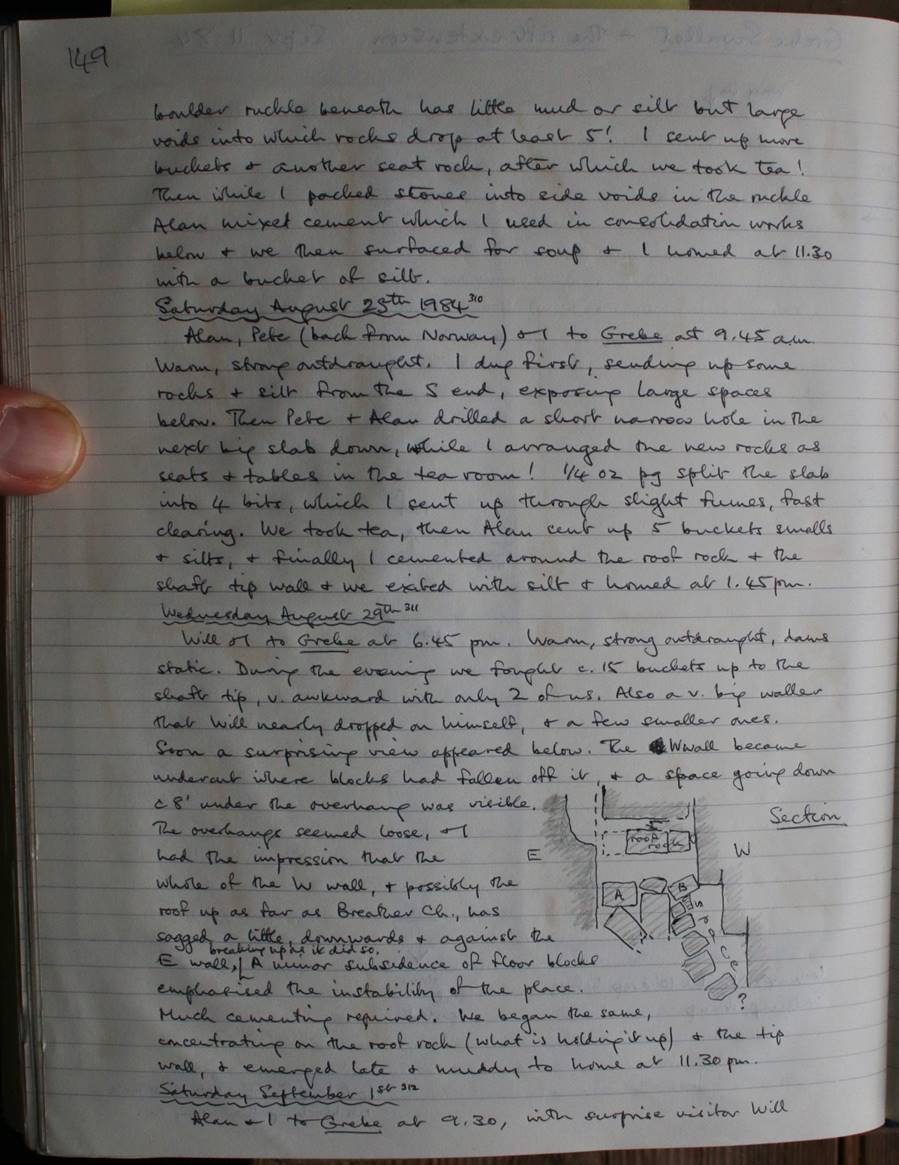 149
boulder ruckle beneath has little mud or silt but large
voids into which rocks drop at least 5! I sent up more
buckets & another seat rock, after which we took tea!
Then while I packed stones into side voids in the ruckle
Alan mixed cement which I used in consolidation works
below & we then surfaced for soup & I homed at 11.30
with a bucket of silt.
Saturday August 25th 1984 310
Alan, Pete (back from Norway) & I to Grebe at 9.45 am.
Warm, strong outdraught. I dug first, sending up some
rocks & silt from the S end, exposing large spaces
below. Then Pete & Alan drilled a short narrow hole in the
next big slab down, while I arranged the new rocks as
seats & tables in the tea room! 1/4 oz pg split the slab
into 4 bits, which I sent up through slight fumes, fast
clearing. We took tea, then Alan sent up 5 buckets smalls
& silts, & finally I cemented around the roof rock & the
shaft tip wall & we exited with silt & homed at 1.45 pm.
Wednesday August 29th 311
Will & I to Grebe at 6.45 pm. Warm, strong outdraught, dams
static. During the evening we fought c. 15 buckets up to the
shaft tip, v. awkward with only 2 of us. Also a v. big waller
that Will nearly dropped on himself, & a few smaller ones.
Soon a surprising view appeared below. The W wall became
undercut where blocks had fallen off it, & a space going down
c 8' under the overhang was visible.
The overhangs seemed loose, & I
had the impression that the
whole of the W wall, & possibly the
roof up as far as Breather Ch., has
sagged a little, downwards & against the
breaking up as it did so.
E wall, A minor subsidence of floor blocks
emphasised the instability of the place.
Much cementing required. We began the same,
concentrating on the roof rock (what is holding it up) & the tip
wall, & emerged late & muddy to home at 11.30 pm.
Saturday September 1st 312
Alan & I to Grebe at 9.30, with surprise visitor Will
Section
E
W
roof rock
A
B
space
?
?